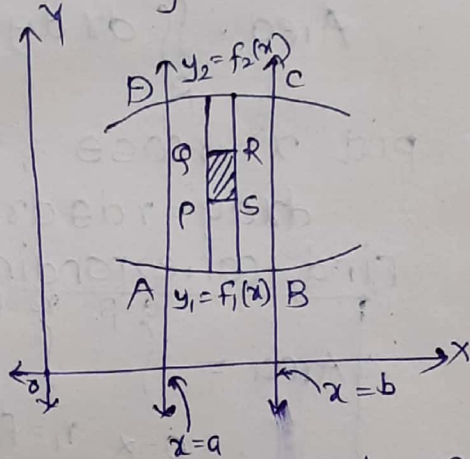 Y
y₂ = f₂(x)
D
C
Q
R
P
S
A
y₁ = f₁(x)
B
X
0
x = b
x = a